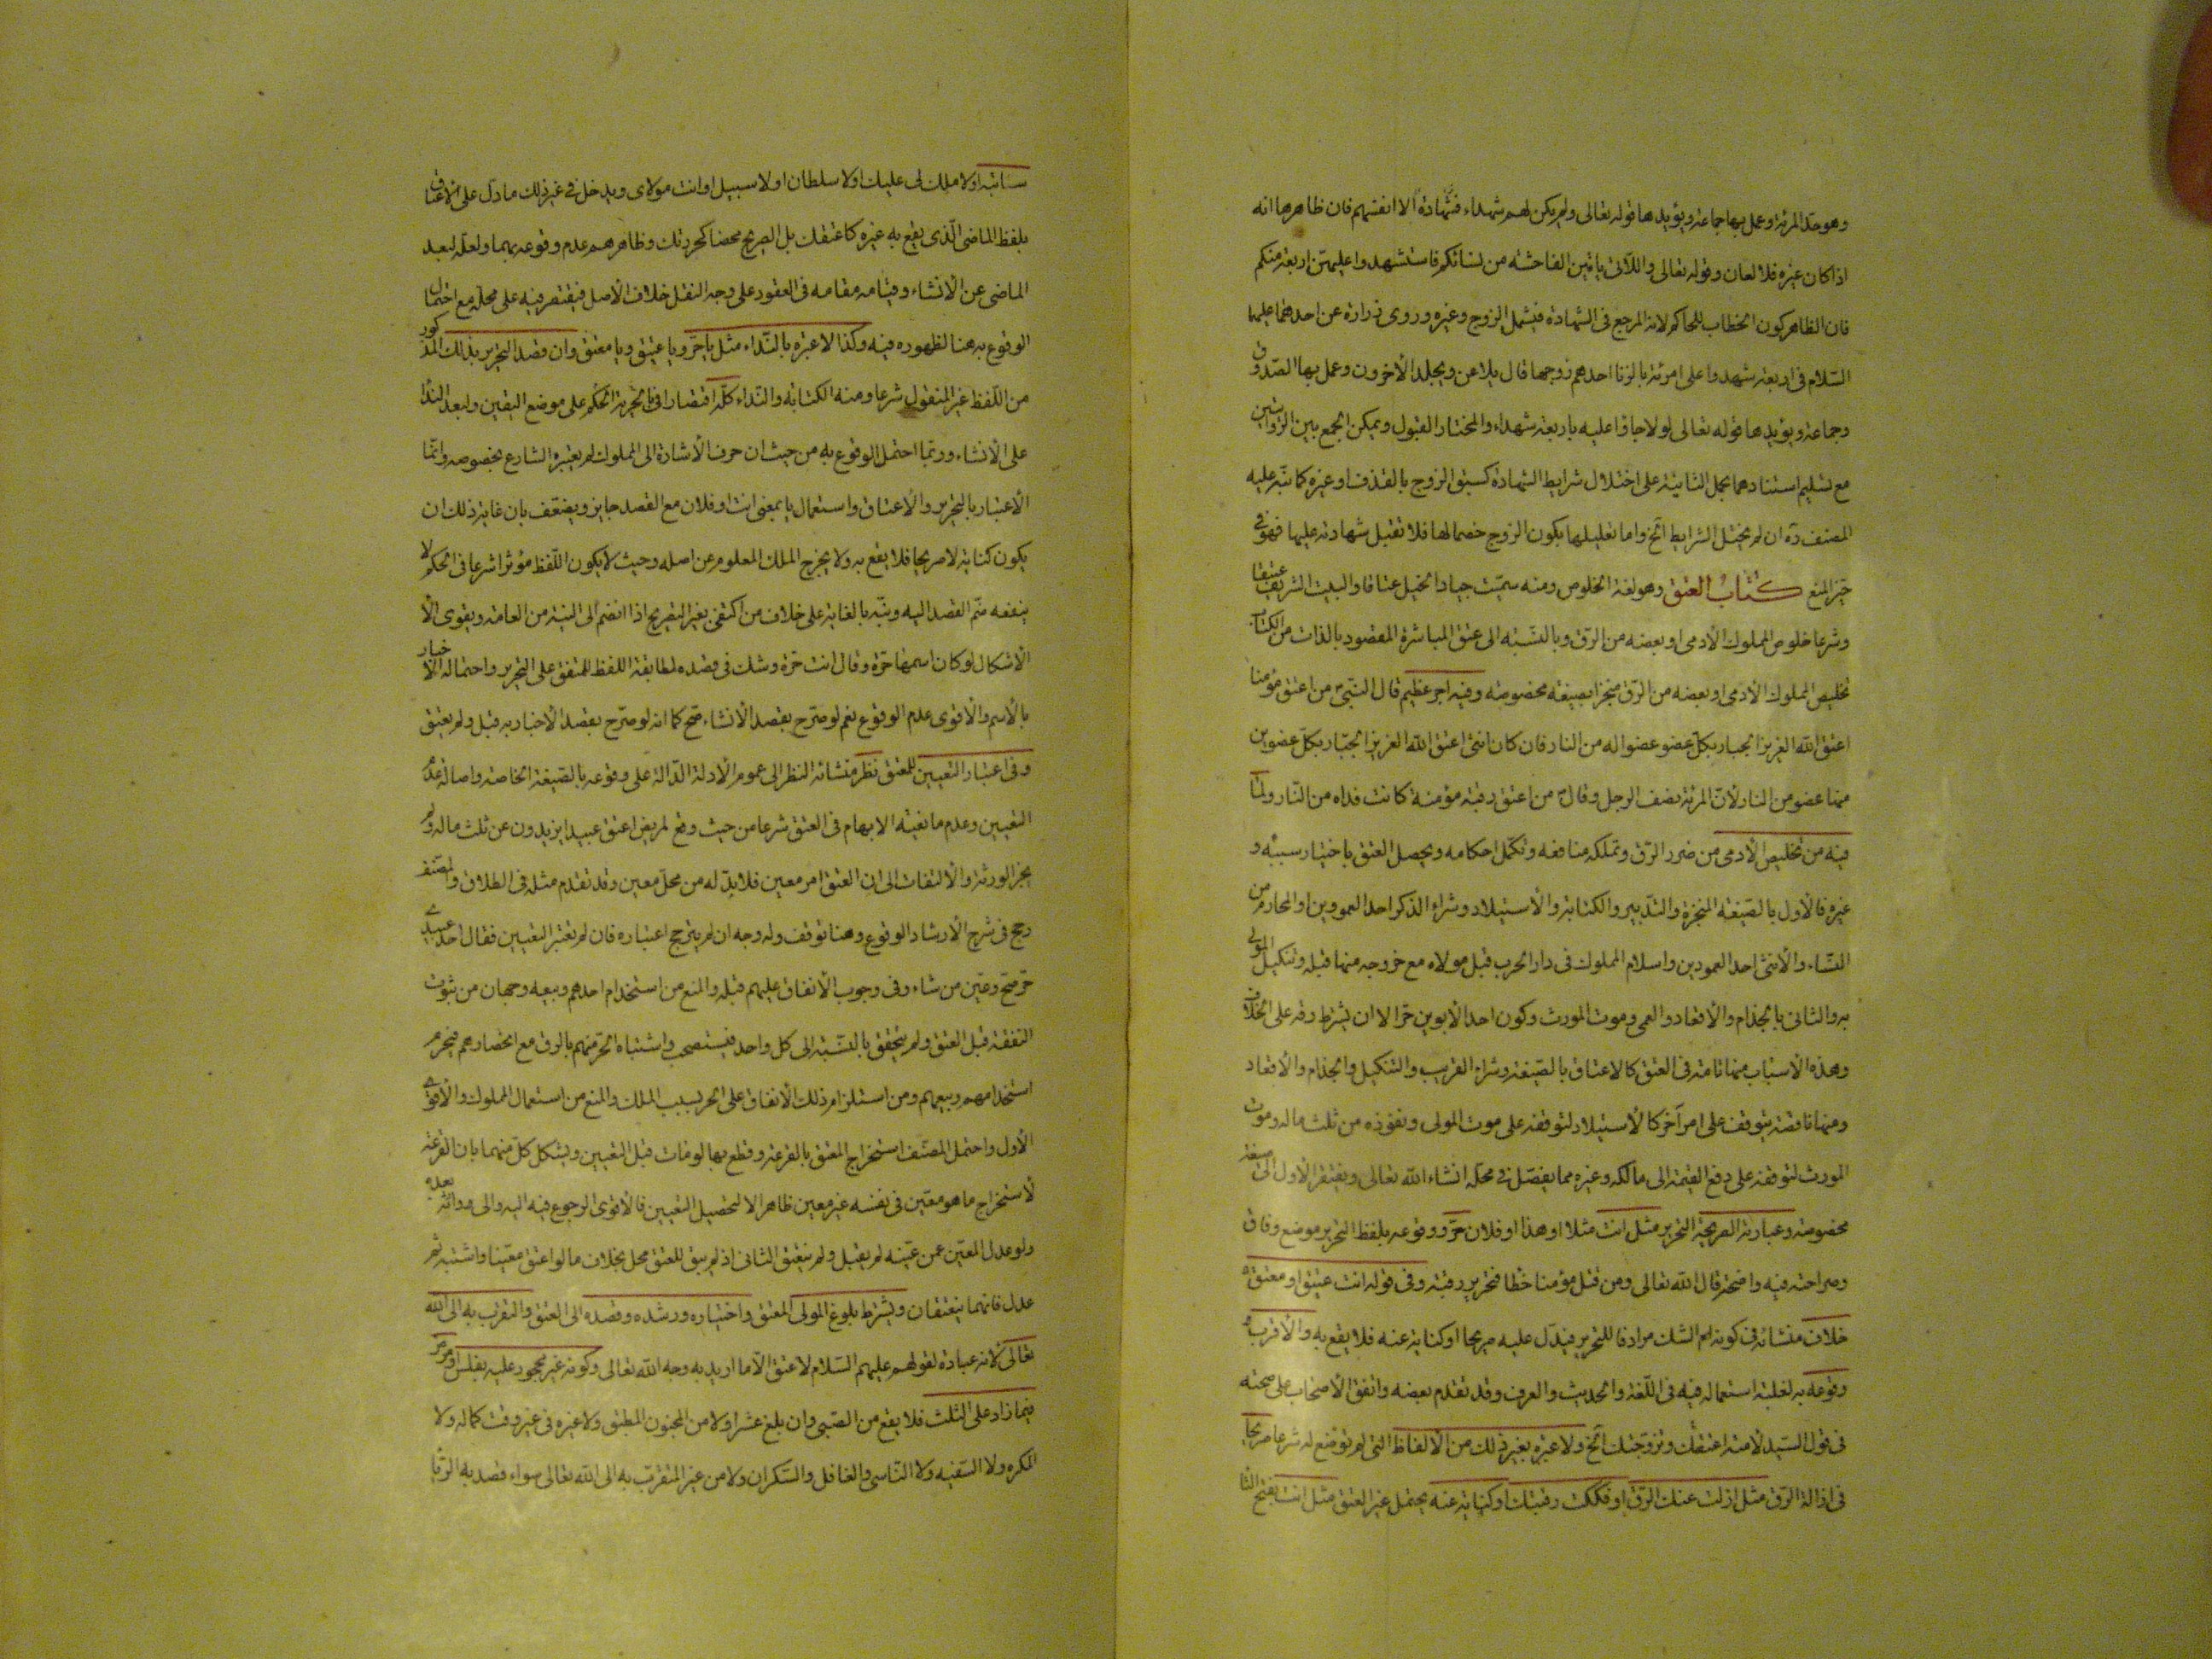 وهو حد المرئة وعمل بها جماعة ويؤيدها قوله تعالى ولم يكن لهم شهداء فشهادة الا انفسهم فان ظاهرها انه
اذا كان غيره فلا لعان وقوله تعالى واللاتى ياتين الفاحشة من نسائكم فاستشهدوا عليهن اربعة منكم
فان الظاهر كون الخطاب للحاكم لانه المرجع فى الشهادة فيشمل الزوج وغيره وروى زرارة عن احدهما عليهما
السلام فى اربعة شهدوا على امرئة بالزنا احدهم زوجها قال يلاعن ويجلد الاخرون وعمل بها الصدوق
وجماعة ويؤيدها قوله تعالى لولا جاؤا عليه باربعة شهداء والمختار القبول ويمكن الجمع بين الروايتين
مع تسليم اسنادهما بحمل الثانية على اختلال شرايط الشهادة كسبق الزوج بالقذف او غيره كما نبه عليه
المصنف ره ان لم يختل الشرايط الخ واما تعليلها بكون الزوج خصما لها فلا تقبل شهادته عليها فهو فى
حيز المنع كتاب العتق وهو لغة الخلوص ومنه سميت جياد الخيل عتاقا والبيت الشريف عتيقا
وشرعا خلوص المملوك الآدمى او بعضه من الرق وبالنسبة الى عتق المباشرة المقصود بالذات من الكتاب
تخليص المملوك الآدمى او بعضه من الرق منجزا بصيغة مخصوصة وفيه اجر عظيم قال النبى من اعتق مؤمنا
اعتق الله العزيز الجبار بكل عضو عضوا له من النار فان كان انثى اعتق الله العزيز الجبار بكل عضوين
منها عضو من النار لان المرئة نصف الرجل وقال من اعتق رقبة مؤمنة كانت فداه من النار ولما
فيه من تخليص الآدمى من ضرر الرق وتملكه منافعه وتكمل احكامه ويحصل العتق باختيار سببه و
غيره فالاول بالصيغة المنجزة والتدبير والكتابة والاستيلاد وشراء الذكر احد العمودين او المحارم من
النساء والانثى احد العمودين واسلام المملوك فى دار الحرب قبل مولاه مع خروجه منها قبله وتنكيل المولى
به والثانى بالجذام والاقعاد والعمى وموت المورث وكون احد الابوين حرا الا ان يشترط رقه على الخلاف
وهذه الاسباب منها تامة فى العتق كالاعتاق بالصيغة وشراء القريب والتنكيل والجذام والاقعاد
ومنها ناقصة يتوقف على امر آخر كالاستيلاد لتوقفه على موت المولى ونفوذه من ثلث ماله وموت
المورث لتوقفه على دفع القيمة الى مالكه وغيره مما يفصل فى محله انشاء الله تعالى ويفتقر الاول الى صيغة
مخصوصة وعبارته الصريحة التحرير مثل انت مثلا او هذا او فلان حر ووقوعه بلفظ التحرير موضع وفاق
وصراحته فيه واضحة قال الله تعالى ومن قتل مؤمنا خطا فتحرير رقبة وفى قوله انت عتيق او معتق
خلاف منشائه فى كونه الشك مرادفا للتحرير فيدل عليه صريحا او كناية عنه فلا يقع به والاقرب
وقوعه به لغلبة استعماله فيه فى اللغة والحديث والعرف وقد تقدم بعضه واتفق الاصحاب على صحته
فى قول السيد لامته اعتقتك وتزوجتك الخ ولا عبرة بغير ذلك من الالفاظ التى لم توضع له شرعا صريحا
فى ازالة الرق مثل ازلت عنك الرق او فككت رقبتك او كناية عنه يحتمل غير العتق مثل انت بفتح التا
سائبة او لا ملك لى عليك او لا سلطان او لا سبيل او انت مولاى ويدخل فى غير ذلك ما دل على الاعتاق
بلفظ الماضى الذى يقع به غيره كاعتقتك بل الصريح محضا كحررتك وظاهرهم عدم وقوعه بهما ولعله لبعد
الماضى عن الانشاء وقيامه مقامه فى العقود على وجه النقل خلاف الاصل فيقتصر فيه على محله مع احتمال
الوقوع به هنا لظهوره فيه وكذا لا عبرة بالنداء مثل يا حر ويا عتيق ويا معتق وان قصد التحرير بذلك المذكور
من اللفظ غير المنقول شرعا ومنه الكتابة والنداء كله اقتصارا فى الحرية الحكم على موضع اليقين ولبعد الندا
على الانشاء وربما احتمل الوقوع به من حيث ان حرف الاشارة الى المملوك لم يعتبره الشارع بخصوصه وانما
الاعتبار بالتحرير والاعتاق واستعمال يا بمعنى انت او فلان مع القصد جايز ويضعف بان غاية ذلك ان
يكون كناية لا صريحا فلا يقع به ولا يخرج الملك المعلوم عن اصله وحيث لا يكون اللفظ مؤثرا شرعا فى الحكم لا
ينفعه ضم القصد اليه ونبه بالغاية على خلاف من اكتفى بغير الصريح اذا انضم الى النية من العامة ويقوى الا
الاشكال لو كان اسمها حرة وقال انت حرة وشك فى قصده لمطابقة اللفظ للمتفق على التحرير واحتماله الاخبار
بالاسم والاقوى عدم الوقوع نعم لو صرح بقصد الانشاء صح كما انه لو صرح بقصد الاخبار به قبل ولم يعتق
وفى اعتبار التعيين للمعتق نظر منشائه النظر الى عموم الادلة الدالة على وقوعه بالصيغة الخاصة واصالة عدم
التعيين وعدم مانعية الابهام فى العتق شرعا من حيث وقع لمريض اعتق عبيدا يزيدون عن ثلث ماله ولم
يجز الورثة والالتفات الى ان العتق امر معين فلا بد له من محل معين وقد تقدم مثله فى الطلاق والمصنف
رجح فى شرح الارشاد الوقوع وهنا توقف وله وجه ان لم يترجح اعتباره فان لم نعتبر التعيين فقال احد عبيدى
حر صح وعين من شاء وفى وجوب الانفاق عليهم قبله والمنع من استخدام احدهم وبيعه وجهان من ثبوت
النفقة قبل العتق ولم يتحقق بالنسبة الى كل واحد فيستصحب واشتباه الحر منهم بالرق مع انحصارهم فيحرم
استخدامهم وبيعهم ومن استلزام ذلك الانفاق على الحر لسبب الملك والمنع من استعمال المملوك والاقوى
الاول واحتمل المصنف استخراج المعتق بالقرعة وقطع بها لو مات قبل التعيين ويشكل كل منهما بان القرعة
لاستخراج ما هو معين فى نفسه غير معين ظاهرا لا لتحصيل التعيين فالاقوى الرجوع فيه اليه والى وراثه بعده
ولو عدل المعين عمن عينه لم يقبل ولم ينعتق الثانى اذ لم يبق للعتق محل بخلاف ما لو اعتق معينا واشتبه ثم
عدل فانهما ينعتقان ويشترط بلوغ المولى المعتق واختياره ورشده وقصده الى العتق والتقرب به الى الله
تعالى لانه عبادة لقولهم عليهم السلام لا عتق الا ما اريد به وجه الله تعالى وكونه غير محجور عليه بفلس او مرض
فيما زاد على الثلث فلا يقع من الصبى وان بلغ عشرا ولا من المجنون المطبق ولا غيره فى غير وقت كماله ولا
المكره ولا السفيه ولا الناسى والغافل والسكران ولا من غير المتقرب به الى الله تعالى سواء قصد به الريا